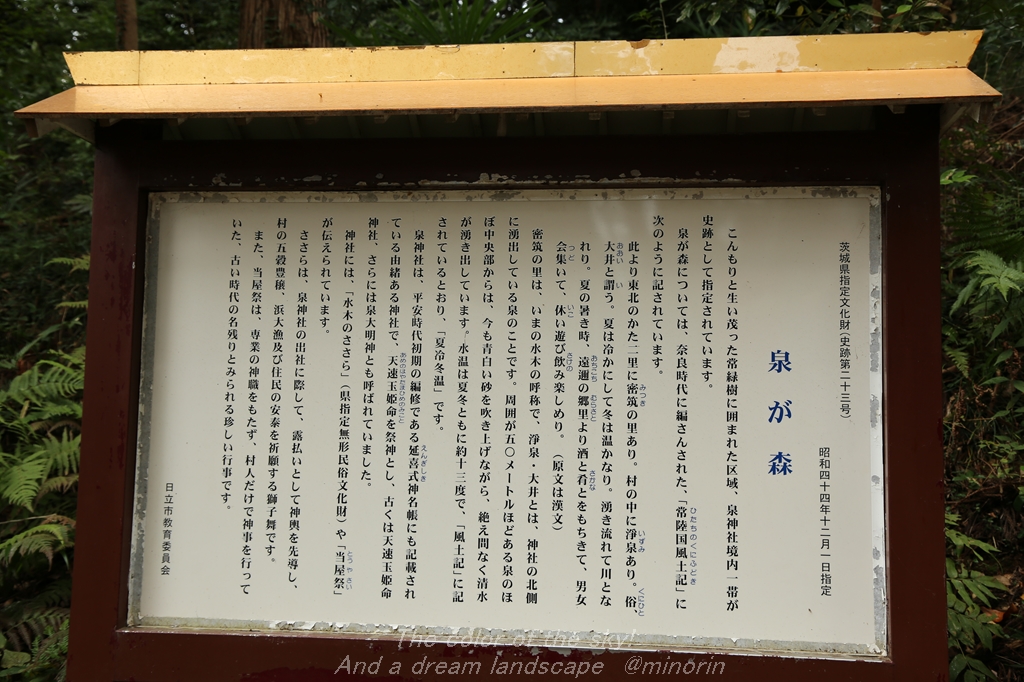 茨城県指定文化財(史跡第二十三号)
昭和四十四年十二月一日指定
泉が森
こんもりと生い茂った常緑樹に囲まれた区域、泉神社境内一帯が
史跡として指定されています。
泉が森については、奈良時代に編さんされた、「常陸国風土記」に
次のように記されています。
此より東北のかた二里に密筑の里あり。村の中に淨泉あり。俗、
大井と謂う。夏は冷かにして冬は温かなり。湧き流れて川とな
れり。夏の暑き時、遠邇の郷里より酒と肴とをもちきて、男女
会集いて、休い遊び飲み楽しめり。(原文は漢文)
密筑の里は、いまの水木の呼称で、淨泉・大井とは、神社の北側
に湧出している泉のことです。周囲が五〇メートルほどある泉のほ
ぼ中央部からは、今も青白い砂を吹き上げながら、絶え間なく清水
が湧き出しています。水温は夏冬ともに約十三度で、「風土記」に記
されているとおり、「夏冷冬温」です。
泉神社は、平安時代初期の編修である延喜式神名帳にも記載され
ている由緒ある神社で、天速玉姫命を祭神とし、古くは天速玉姫命
神社、さらには泉大明神とも呼ばれていました。
神社には、「水木のささら」(県指定無形民俗文化財)や「当屋祭」
が伝えられています。
ささらは、泉神社の出社に際して、露払いとして神輿を先導し、
村の五穀豊穣、浜大漁及び住民の安泰を祈願する獅子舞です。
また、当屋祭は、専業の神職をもたず、村人だけで神事を行って
いた、古い時代の名残りとみられる珍しい行事です。
日立市教育委員会
The color of the sky!
And a dream landscape @minorin